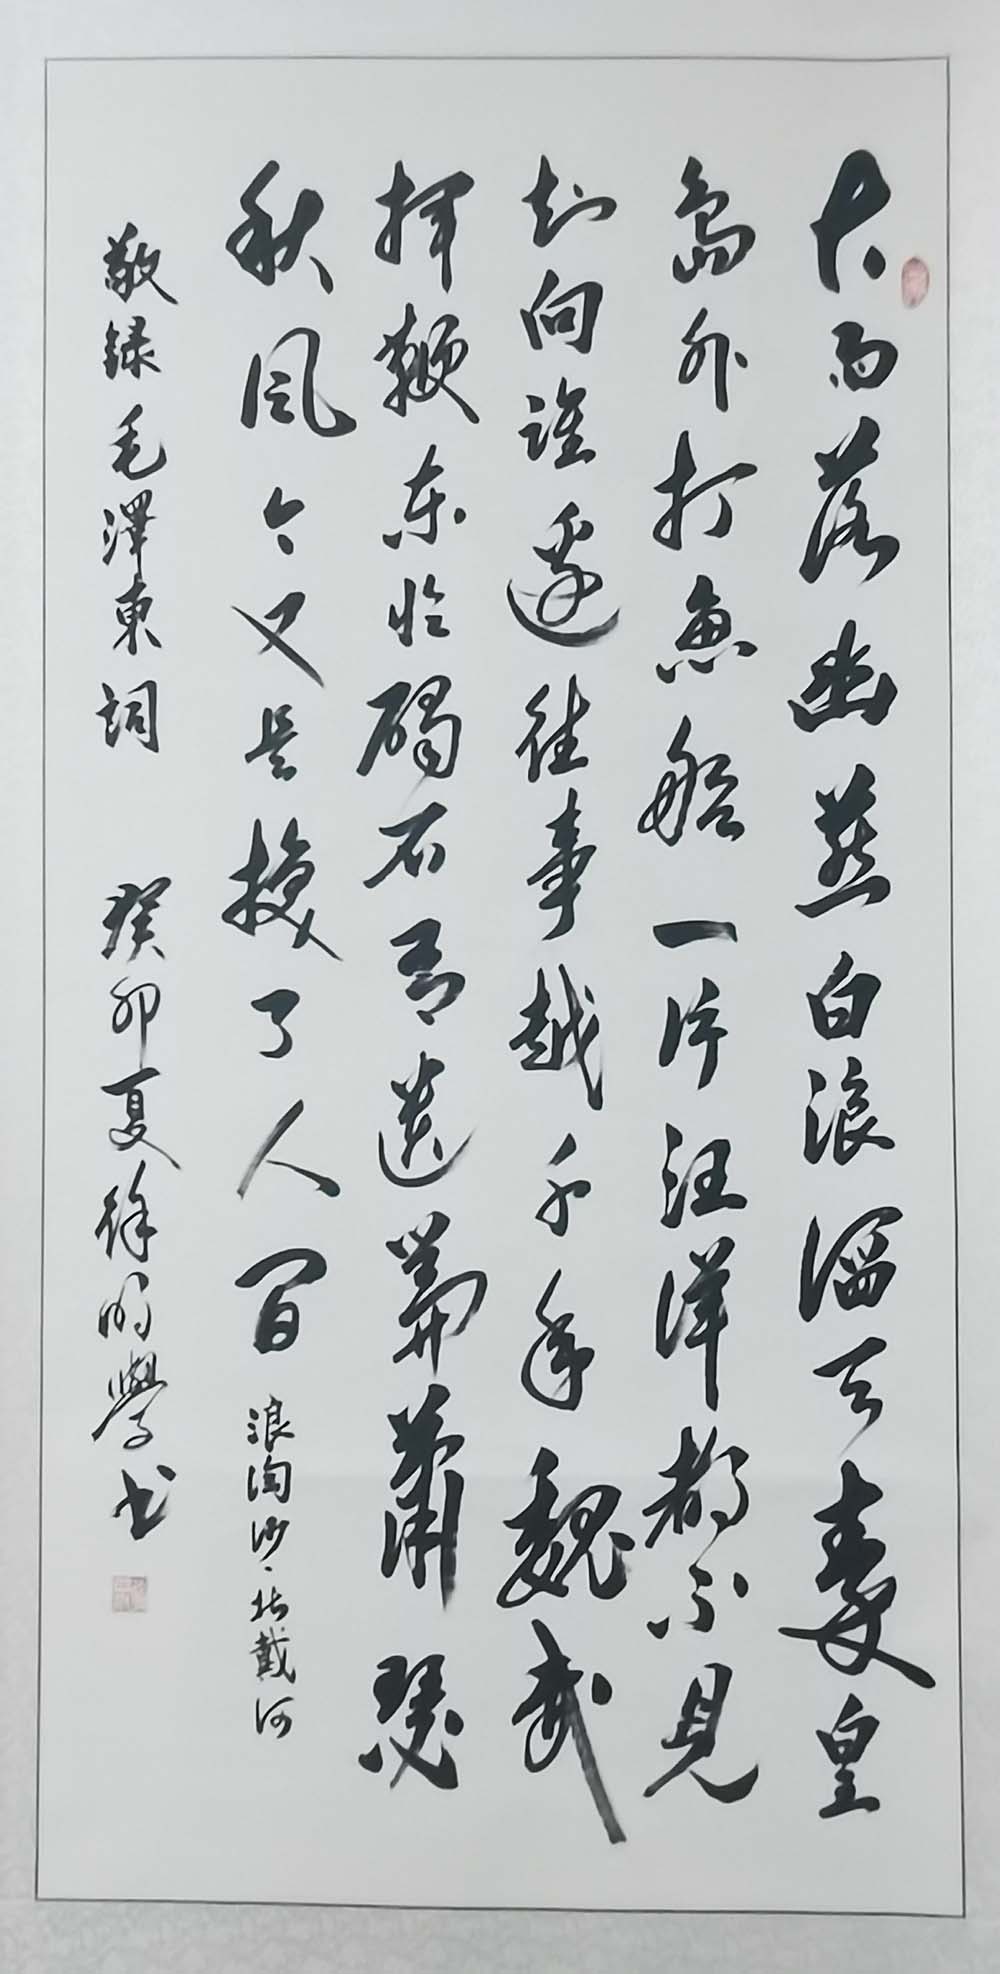 大雨落幽燕白浪滔天秦皇
岛外打鱼船一片汪洋都不见
知向谁边往事越千年魏武
挥鞭东临碣石有遗篇萧瑟
秋风今又是换了人间
浪淘沙·北戴河
敬録毛澤東詞 癸卯夏徐明學书